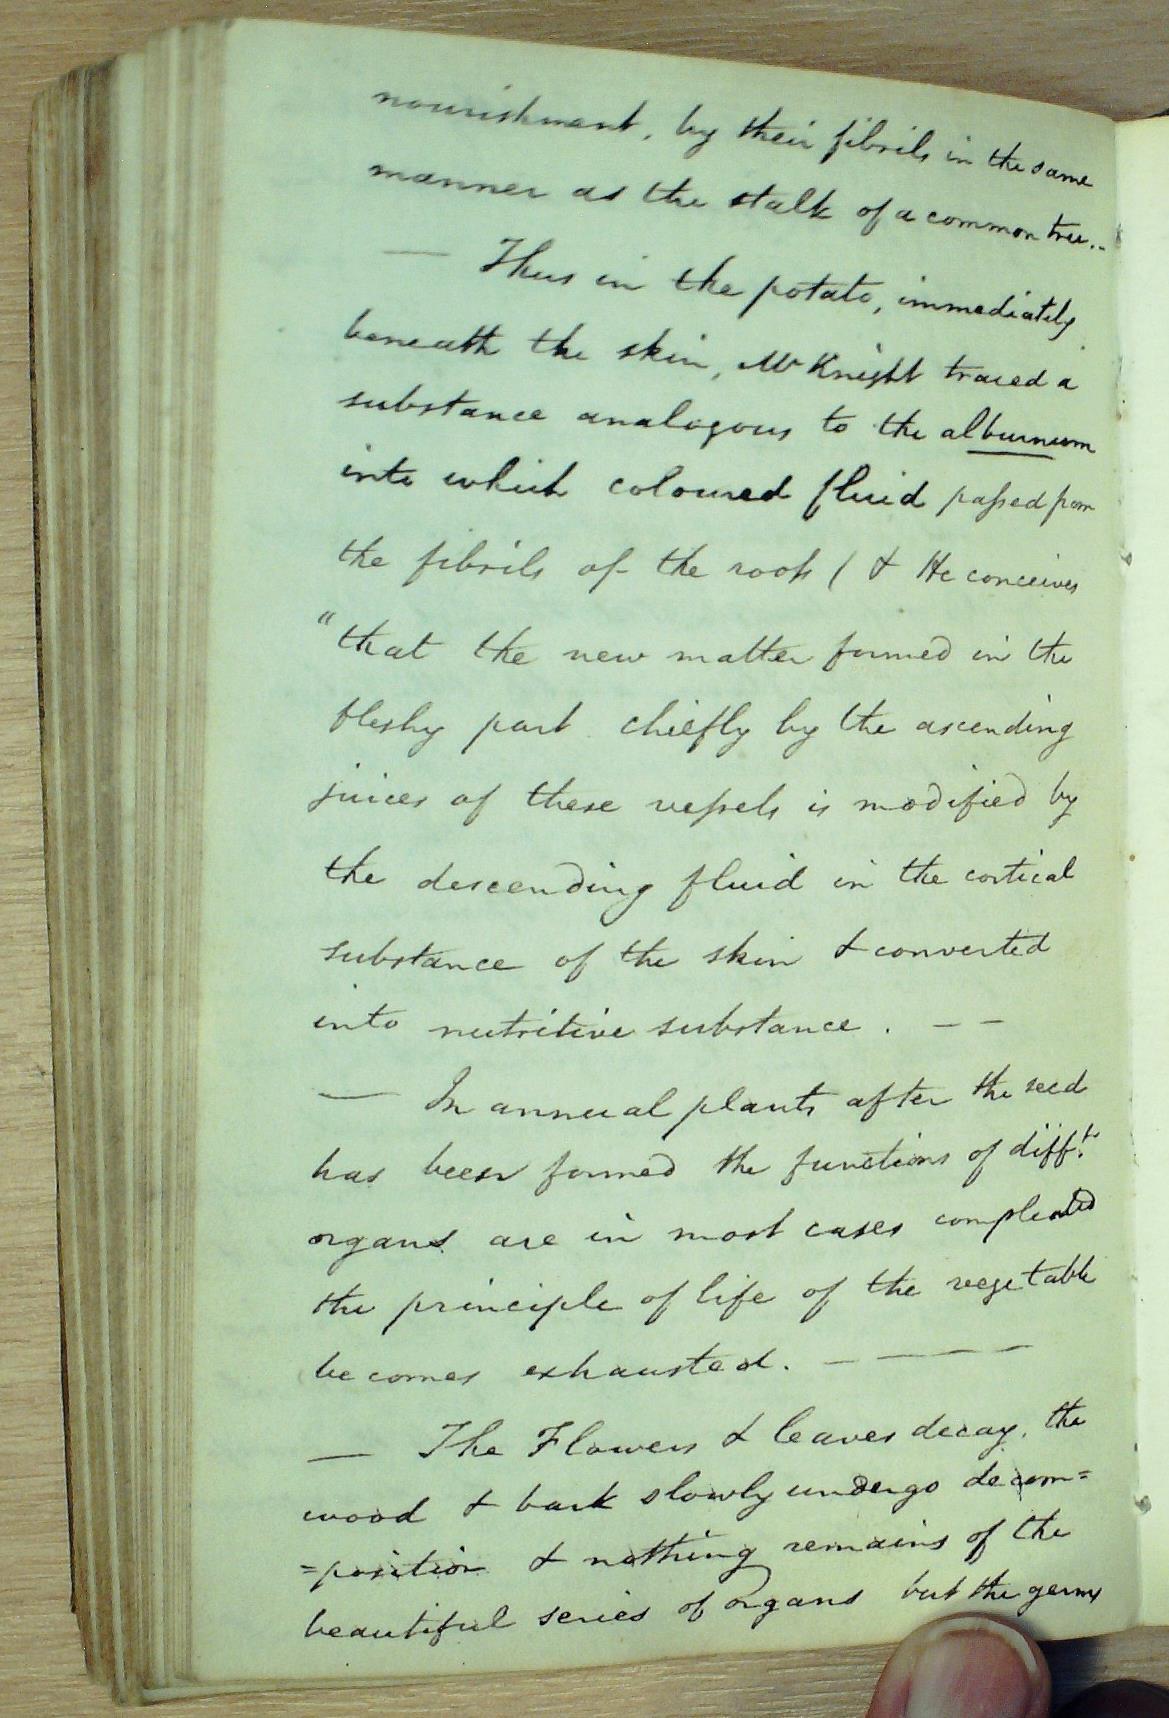 nourishment, by their fibrils in the same
manner as the stalk of a common tree..
— Thus in the potato, immediately
beneath the skin, Mr Knight traced a
substance analogous to the alburnum
into which coloured fluid passed from
the fibrils of the roots ( & He conceives
"that the new matter formed in the
fleshy part chiefly by the ascending
juices of these vessels is modified by
the descending fluid in the cortical
substance of the skin & converted
into nutritive substance. — —
— In annual plants after the seed
has been formed the functions of difft.
organs are in most cases compleated
the principle of life of the vegetable
becomes exhausted. — — —
— The Flowers & leaves decay, the
wood & bark slowly undergo decom=
=position & nothing remains of the
beautiful series of organs but the germs